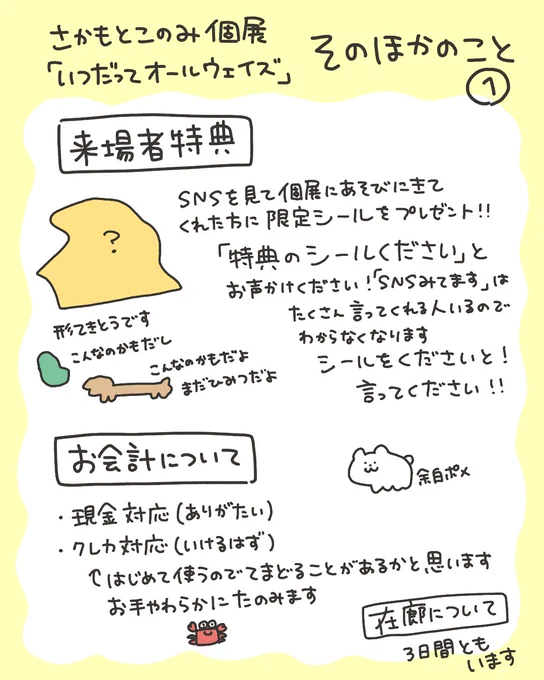 さかもとこのみ個展
「いつだってオールウェイズ」
そのほかのこと
①
来場者特典
?
SNSを見て個展にあそびにきて
くれた方に限定シールをプレゼント!!
「特典のシールください」と
お声かけください!「SNSみてます」は
たくさん言ってくれる人いるので
わからなくなります
シールをくださいと!
言ってください!!
形てきとうです
こんなのかもだし
こんなのかもだよ
まだひみつだよ
お会計について
余白ポメ
・現金対応(ありがたい)
・クレカ対応(いけるはず)
↑はじめて使うのでてまどることがあるかと思います
お手やわらかにたのみます
在廊について
3日間とも
います